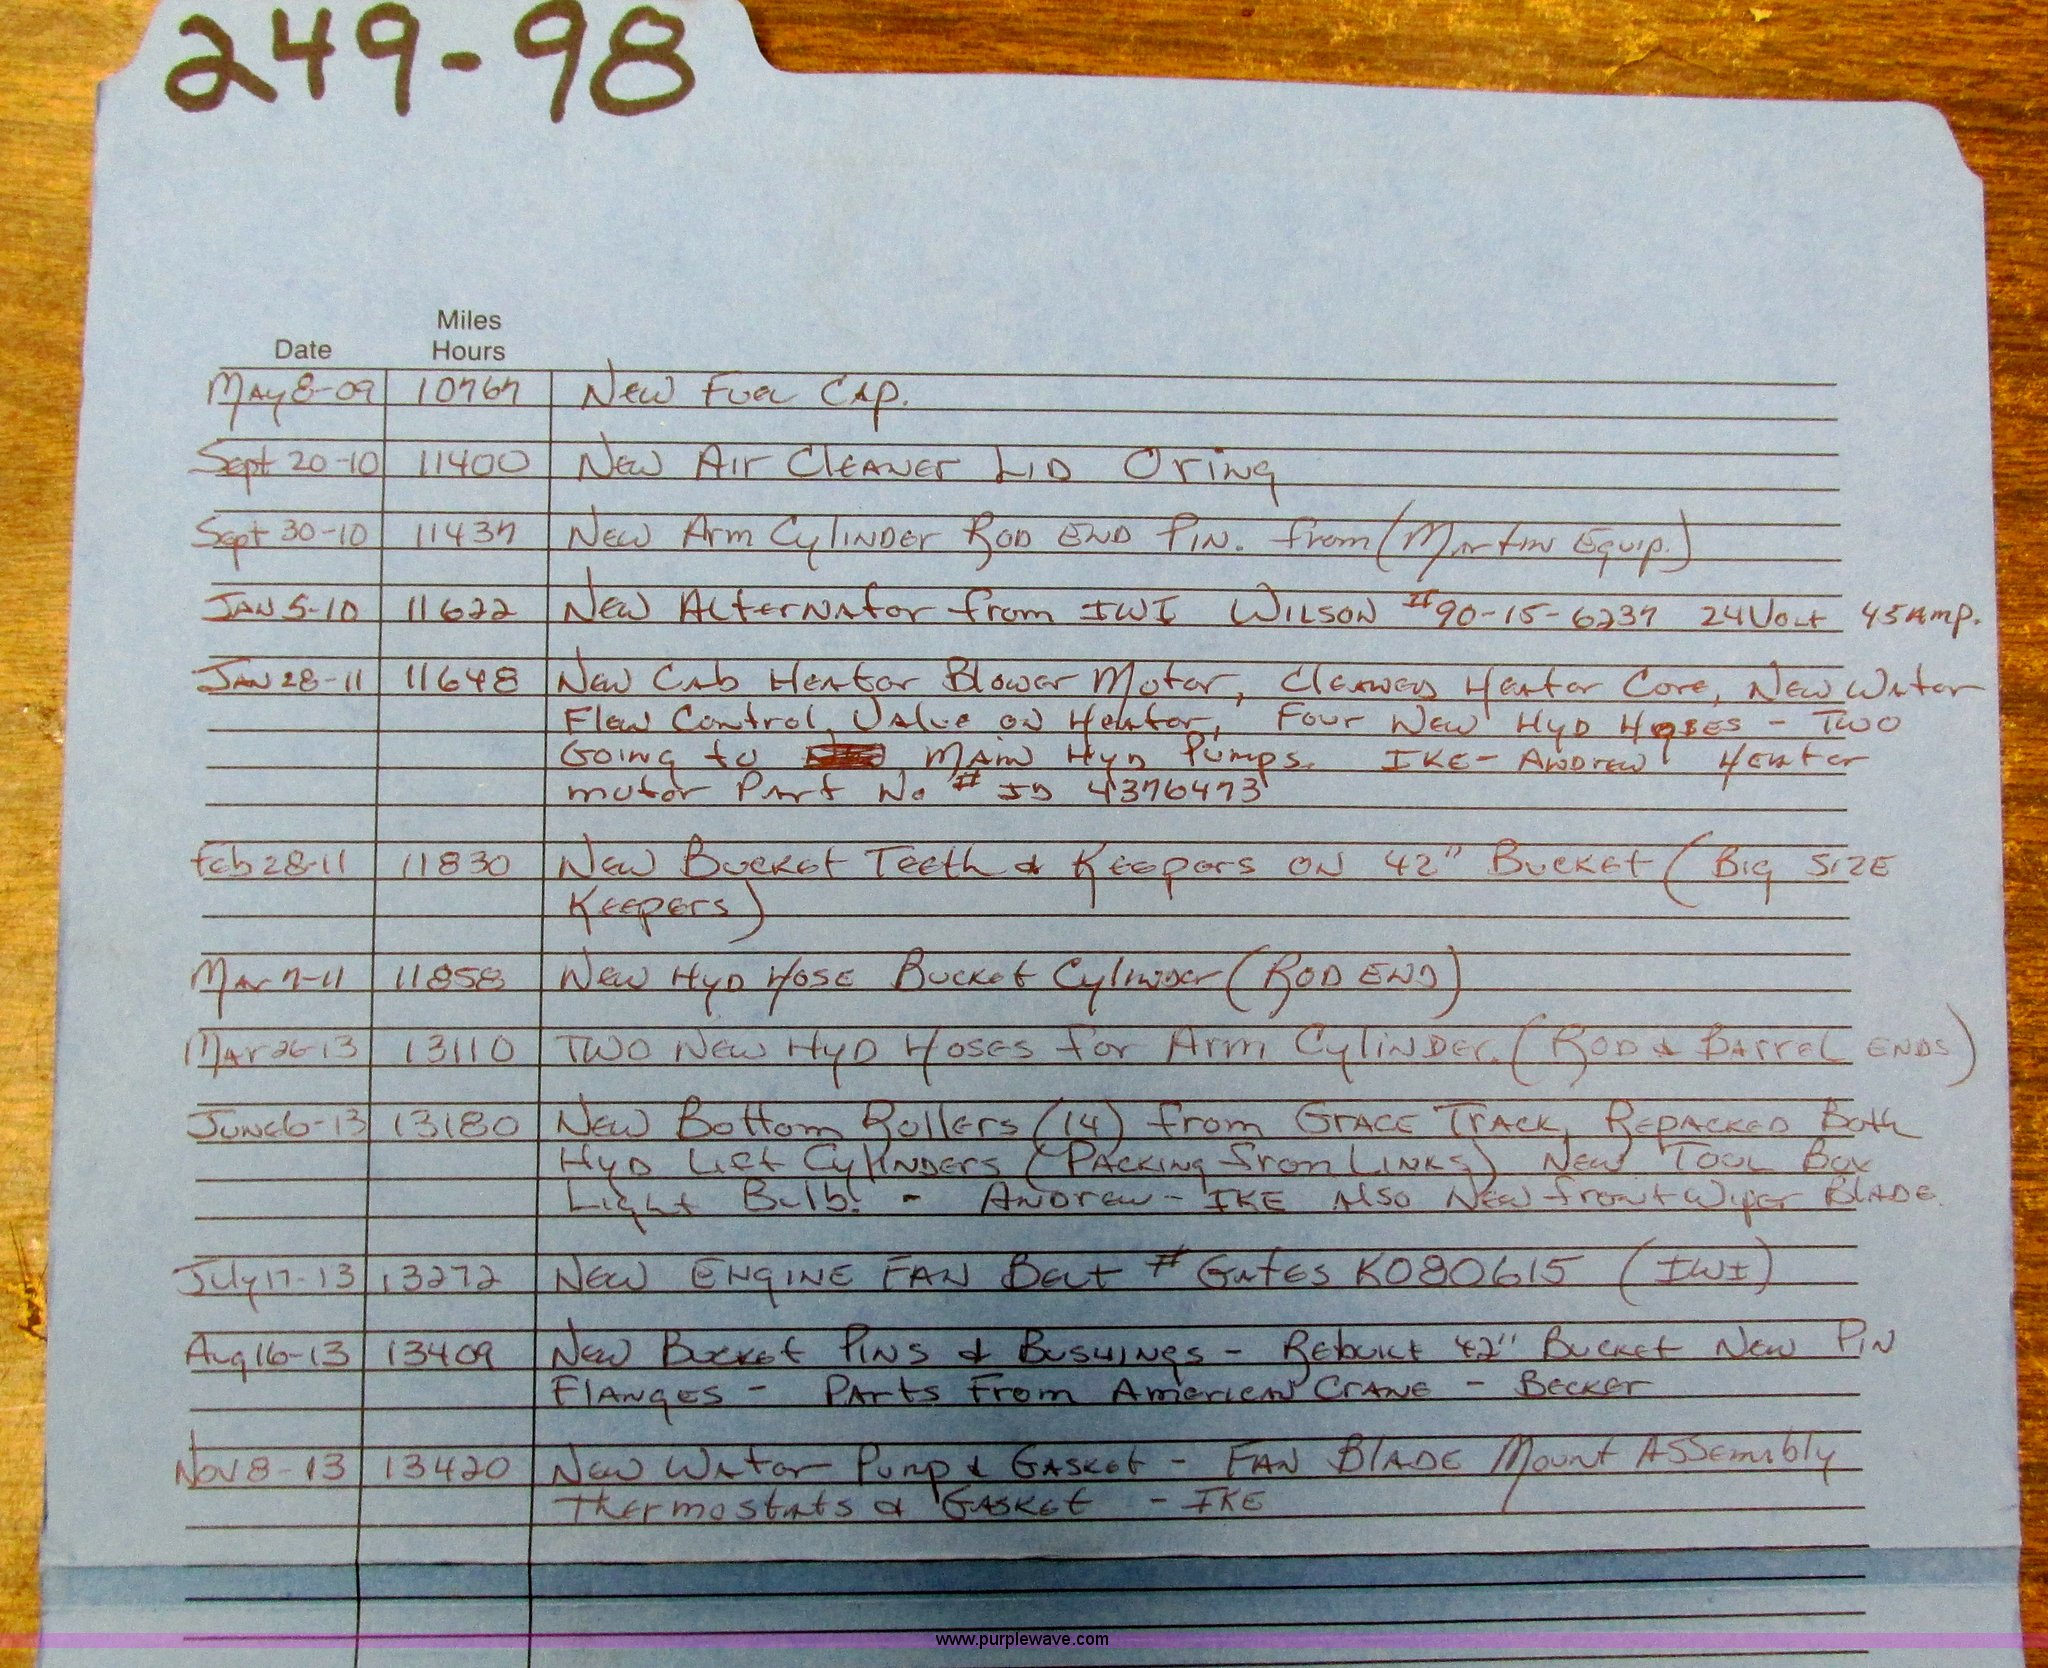 249-98
Miles
Date Hours
May 8-09 10767 New Fuel Cap.
Sept 20-10 11400 New Air Cleaner Lid Oring
Sept 30-10 11437 New Arm Cylinder Rod End Pin. from (Martin Equip.)
Jan 5-10 11622 New Alternator from IWI Wilson #90-15-6237 24Volt 45Amp.
Jan 28-11 11648 New Cab Heater Blower Motor, Cleaned Heater Core, New Water
Flow Control Valve on Heater, Four New Hyd Hoses - Two
Going to Main Hyd Pumps. IKE-Andrew Heater
motor Part No # ID 4376473
Feb 28-11 11830 New Bucket Teeth & Keepers on 42" Bucket (Big Size
Keepers)
Mar 7-11 11858 New Hyd Hose Bucket Cylinder (Rod End)
Mar 26-13 13110 Two New Hyd Hoses for Arm Cylinder. (Rod & Barrel Ends)
June 6-13 13180 New Bottom Rollers (14) from Grace Track, Repacked Both
Hyd Lift Cylinders (Packing from Links) New Tool Box
Light Bulb. - Andrew-IKE Also New front Wiper Blade
July 17-13 13272 New Engine Fan Belt # Gates K080615 (IWI)
Aug 16-13 13409 New Bucket Pins & Bushings - Rebuilt 42" Bucket New Pin
Flanges - Parts From American Crane - Becker
Nov 8-13 13420 New Water Pump & Gasket - Fan Blade Mount Assembly
Thermostats & Gasket - IKE
www.purplewave.com